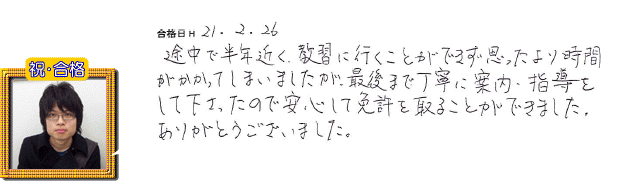 合格日 H 21.2.26
祝・合格
途中で半年近く、教習に行くことができず思ったより時間
がかかってしまいましたが、最後まで丁寧に案内・指導を
して下さったので安心して免許を取ることができました。
ありがとうございました。